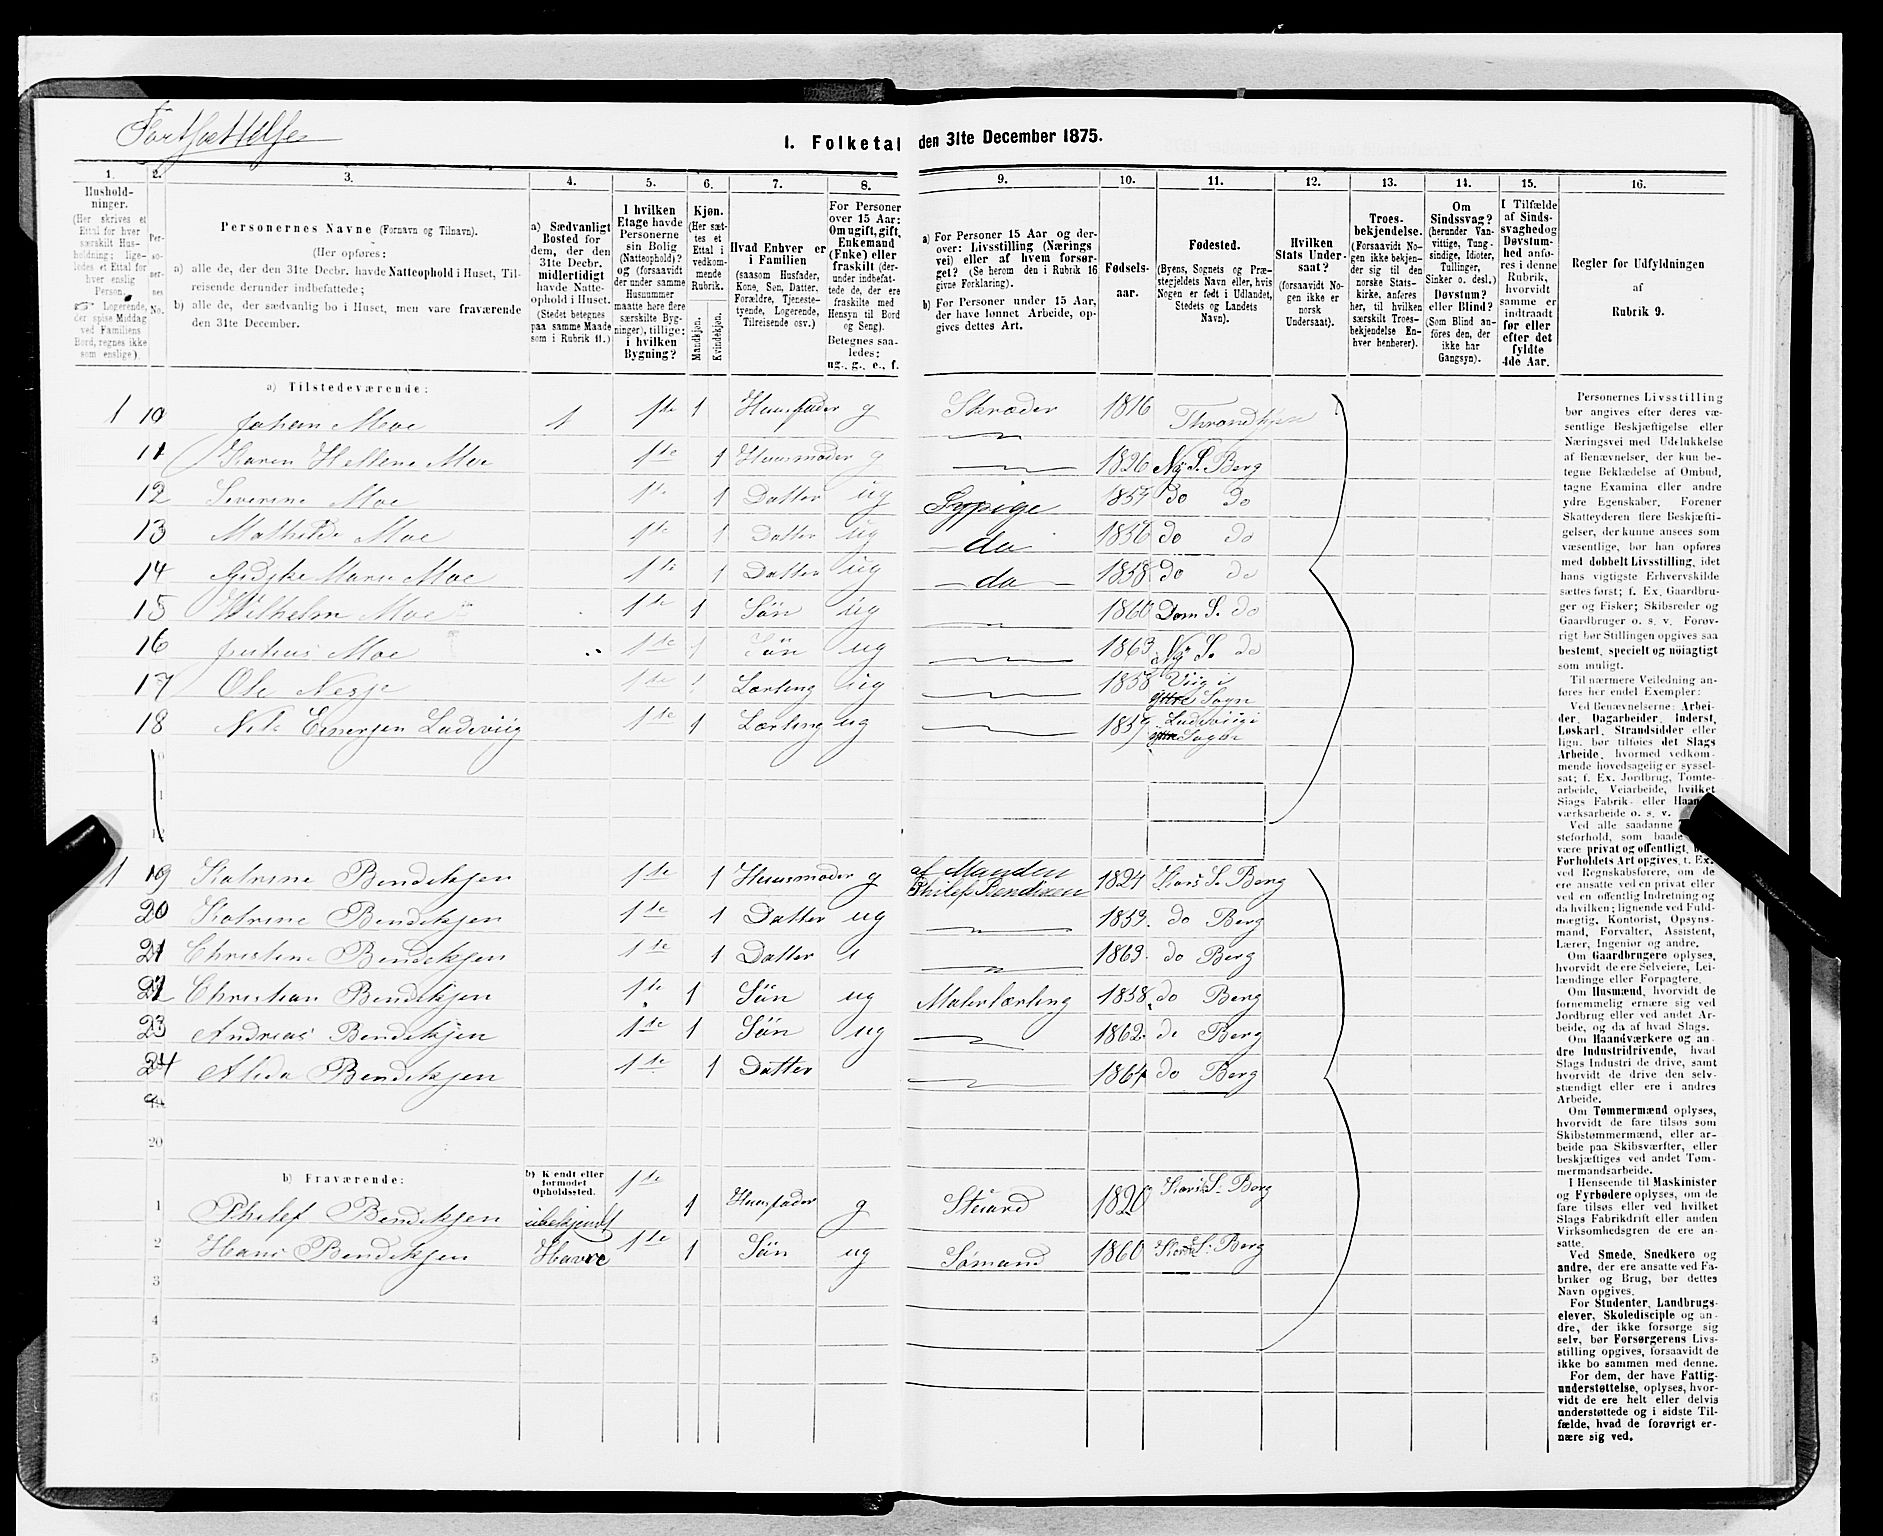 Fortsættelse
I. Folketal den 31te December 1875.
1. 2. 3. 4. 5. 6. 7. 8. 9. 10. 11. 12. 13. 14. 15. 16.
Hushold-
ninger.
(Her skrives et
Ettal for hver
særskilt Hus-
holdning; lige-
ledes et Ettal for
hver enslig
Person.
Logerende,
der spise Middag
ved Familiens
Bord, regnes ikke
som enslige).
Per-
so-
ner-
nes
No.
Personernes Navne (Fornavn og Tilnavn).
(Her opføres:
a) alle de, der den 31te Decbr. havde Natteophold i Huset, Til-
reisende derunder indbefattede;
b) alle de, der sædvanlig bo i Huset, men vare fraværende
den 31te December.
a) Sædvanligt
Bosted for
dem, der den
31te Decbr.
midlertidigt
havde Natte-
ophold i Huset.
(Stedet betegnes
paa samme Maade
som i Rubrik 11.)
I hvilken
Etage havde
Personerne
sin Bolig
(Natteophold)?
og (forsaavidt
der under samme
Husnummer
maatte høre flere
særskilte Byg-
ninger), tillige:
i hvilken
Bygning?
Kjøn.
(Her sæt-
tes et
Ettal i
vedkom-
mende
Rubrik.
Mandkjøn.
Kvindekjøn.
Hvad Enhver er
i Familien
(saasom Husfader,
Kone, Søn, Datter,
Forældre, Tjeneste-
tyende, Logerende,
Tilreisende osv.)
For Personer
over 15 Aar:
Om ugift, gift,
Enkemand
(Enke) eller
fraskilt (der-
under indbefat-
tede de, der ere
fraskilte med
Hensyn til Bord
og Seng).
Betegnes saa-
ledes:
ug., g., e., f.
a) For Personer 15 Aar og der-
over: Livsstilling (Nærings
vei) eller af hvem forsør-
get? (Se herom den i Rubrik 16
givne Forklaring).
b) For Personer under 15 Aar,
der have lønnet Arbeide, op-
gives dettes Art.
Fødsels-
aar.
Fødested.
(Byens, Sognets og Præ-
stegjeldets Navn eller, hvis
Nogen er født i Udlandet,
Stedets og Landets
Navn).
Hvilken
Stats Under-
saat?
(forsaavidt No-
gen ikke er
norsk
Undersaat).
Troes-
bekjendelse.
(Forsaavidt No-
gen ikke bekjen-
der sig til den
norske Stats-
kirke, anføres
her, til hvilken
særskilt Troes-
bekjendelse En-
hver henhører).
Om
Sindssvag?
(herunder Van-
vittige, Tung-
sindige, Idioter,
Tullinger,
Sinker o. desl.)
Døvstum?
eller Blind?
(Som Blind an-
føres den, der
ikke har
Gangsyn).
I Tilfælde
af Sinds-
svaghed og
Døvstum-
hed anfø-
res i denne
Rubrik,
hvorvidt
samme er
indtraadt
før eller
efter det
fyldte
4de Aar.
Regler for Udfyldningen
af
Rubrik 9.
a) Tilstedeværende:
1 10 Johan Moe 1 1ste 1 Huusfader g Skræder 1816 Throndhjem
11 Karen Hellene Moe 1ste 1 Huusmoder g 1826 Ny S. Berg
12 Severine Moe 1ste 1 Datter ug Sypige 1854 do do
13 Mathilde Moe 1ste 1 Datter ug do 1856 do do
14 Gidske Marie Moe 1ste 1 Datter ug do 1858 do do
15 Wilhelm Moe 1ste 1 Sön ug 1860 Dom S. do
16 Julius Moe 1ste 1 Sön ug 1863 Ny S. do
17 Ole Nesje 1ste 1 Lærling ug 1858 Viig i
Yttre Sogn
18 Nils Einersen Ladeviig 1ste 1 Lærling ug 1859 Ladeviig i
yttre Sogn
1 19 Katrine Bendiksen 1ste 1 Huusmoder g af Manden
Philef Bendixen 1824 Kors S. Berg
20 Katrine Bendiksen 1ste 1 Datter ug 1853 do Berg
21 Christine Bendiksen 1ste 1 Datter 1 1863 do Berg
22 Christian Bendiksen 1ste 1 Sön ug Malerlærling 1858 do Berg
23 Andreas Bendiksen 1ste 1 Sön ug 1862 do Berg
24 Alida Bendiksen 1ste 1 Datter 1864 do Berg
20
b) Fraværende:
b) Kjendt eller
formodet
Opholdssted.
1 Philef Bendiksen ubekjendt 1ste 1 Huusfader g Steiard 1820 Kors S. Berg
2 Hans Bendiksen Havre 1ste 1 Sön ug Sömand 1860 Kors S. Berg
3
4
5
6
Personernes Livsstilling
bør angives efter deres væ-
sentlige Beskjæftigelse eller
Næringsvei med Udelukkelse
af Benævnelser, der kun be-
tegne Beklædelse af Ombud,
tagne Examina eller andre
ydre Egenskaber. Forener
Skatteyderen flere Beskjæfti-
gelser, der kunne ansees som
væsentlige, bør han opføres
med dobbelt Livsstilling, idet
hans vigtigste Erhvervskilde
sættes først; f. Ex. Gaardbru-
ger og Fisker; Skibsreder og
Gaardbruger o. s. v. Forøv-
rigt bør Stillingen opgives saa
bestemt, specielt og nöiagtigt
som muligt.
Til nærmere Veiledning an-
føres her endel Exempler:
Ved Benævnelserne: Arbei-
der, Dagarbeider, Inderst,
Løskarl, Strandsidder eller
lign. bør tilføies det Slags
Arbeide, hvormed vedkom-
mende hovedsagelig er syssel-
sat; f. Ex. Jordbrug, Tomte-
arbeide, Veiarbeide, hvilket
Slags Fabrik- eller Haand-
værksarbeide o. s. v.
Ved alle saadanne
steforhold, som baade
være privat og offentligt,
Forholdets Art opgives, t. Ex.
ved Regnskabsførere, om de
ere ansatte ved en privat eller
ved en offentlig Indretning og
da hvilken; lignende ved Fuld-
mægtig, Kontorist, Opsyns-
mand, Forvalter, Assistent,
Lærer, Ingeniør og andre.
Om Gaardbrugere oplyses,
hvorvidt de ere Selveiere, Lei-
lændinge eller Forpagtere.
Om Husmænd, hvorvidt de
fornemmelig ernære sig ved
Jordbrug eller ved andet Ar-
beide, og da af hvad Slags.
Om Haandværkere og an-
dre Industridrivende, hvad
Slags Industri de drive, samt
hvorvidt de drive den selv-
stændigt eller ere i andres
Arbeide.
Om Tømmermænd oplyses,
hvorvidt de fare tilsøs som
Skibstømmermænd, eller ar-
beide paa Skibsværfter, eller
beskjæftiges ved andet Tøm-
mermandsarbeide.
I Henseende til Maskinister
og Fyrbødere oplyses, om de
fare tilsøs eller ved hvilket
Slags Fabrikdrift eller anden
Virksomhedsgren de ere an-
satte.
Ved Smede, Snedkere og
andre, der ere ansatte ved Fa-
briker og Brug, bør dettes
Navn opgives.
For Studenter, Landbrugs-
elever, Skoledisciple og an-
dre, der ikke forsørge sig
selv, bør Forsørgerens Livs-
stilling opgives, forsaavidt de
ikke bo sammen med denne.
For dem, der have Fattig-
understøttelse, oplyses, hvor-
vidt de ere helt eller delvis
understøttede og i sidste Til-
fælde, hvad de forøvrigt er-
nære sig ved.